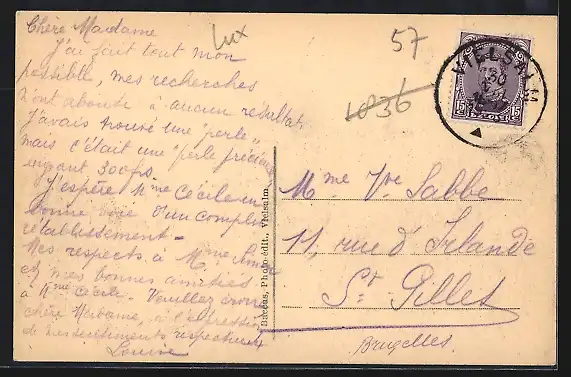 Chère Madame
J'ai fait tout mon
possible, mes recherches
n'ont abouti à aucun résultat.
J'avais trouvé une "perle"
mais c'était une "perle précieuse"
exigeant 300frs
J'espère Mme Cécile en
bonne voie d'un complet
rétablissement -
Mes respects à Mme
et mes bonnes amitiés
à Mme Cécile. Veuillez croire
chère Madame, à l'expression
de mes sentiments respectueux
Louise
lux
57
1036
VIELSALM
30
15 15
Baccus, Photo édit., Vielsalm.
Mme Vve Labbe
11, rue d'Irlande
St Gilles
Bruxelles.